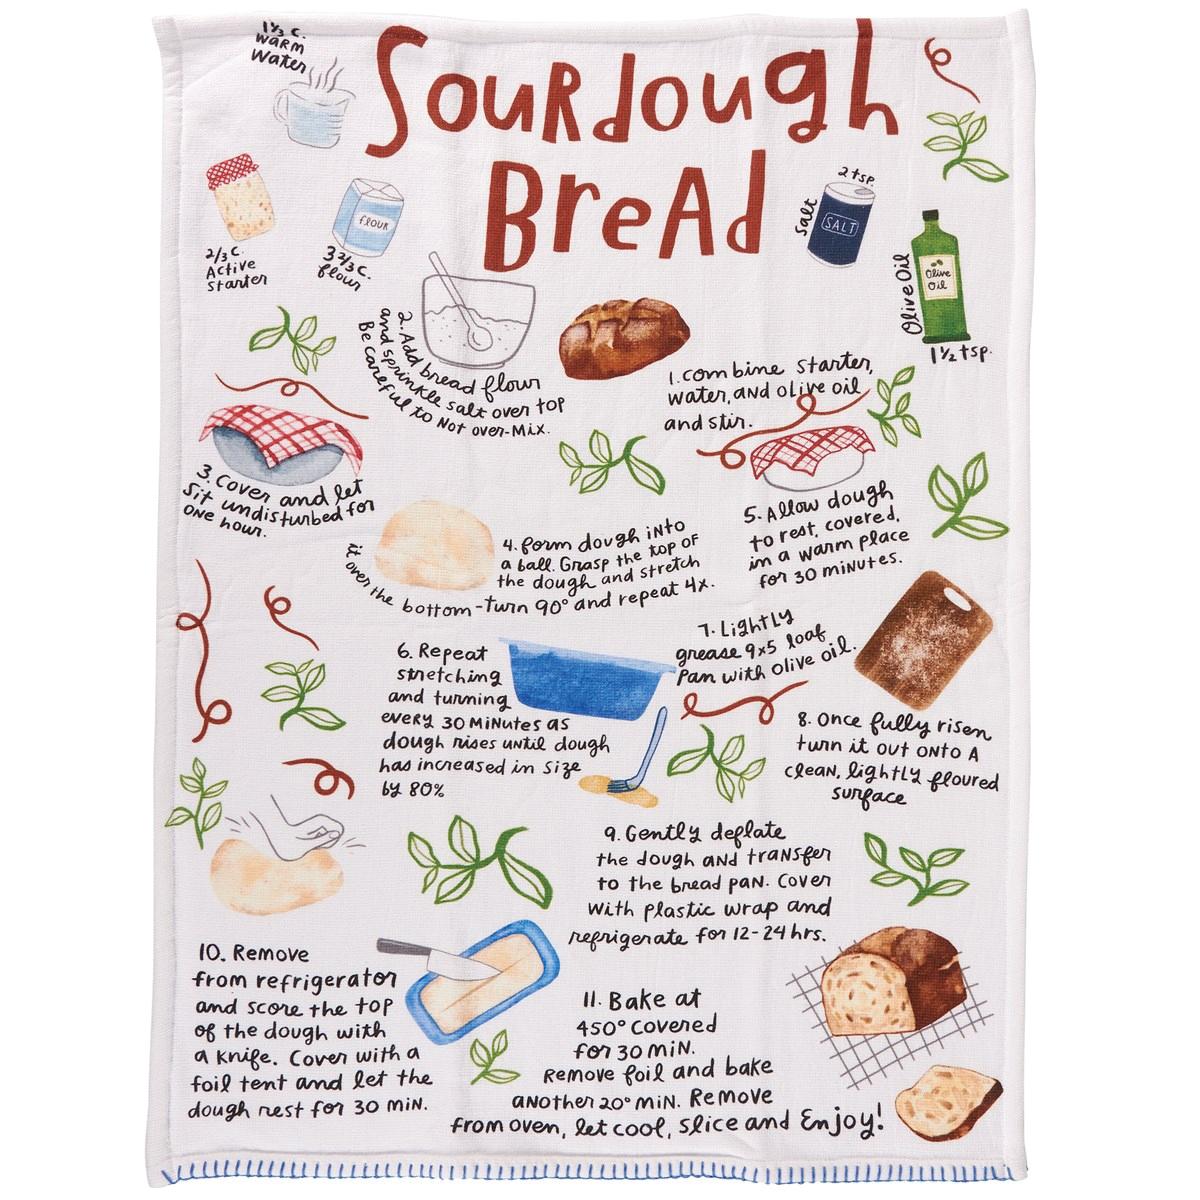 Sourdough
Bread
1⅓ c.
warm
water
2/3 c.
Active
starter
flour
3 2/3 c.
flour
2 tsp.
Salt
SALT
Olive Oil
Olive
Oil
1½ tsp.
1. Combine starter,
water, and olive oil
and stir.
2. Add bread flour
and sprinkle salt over top
Be careful to Not over-Mix.
3. Cover and let
sit undisturbed for
one hour.
4. form dough into
a ball. Grasp the top of
the dough and stretch
it over the bottom - turn 90° and repeat 4x.
5. Allow dough
to rest, covered,
in a warm place
for 30 minutes.
6. Repeat
stretching
and turning
every 30 minutes as
dough rises until dough
has increased in size
by 80%
7. Lightly
grease 9x5 loaf
pan with olive oil.
8. Once fully risen
turn it out onto a
clean, lightly floured
surface
9. Gently deflate
the dough and transfer
to the bread pan. Cover
with plastic wrap and
refrigerate for 12-24 hrs.
10. Remove
from refrigerator
and score the top
of the dough with
a knife. Cover with a
foil tent and let the
dough rest for 30 min.
11. Bake at
450° covered
for 30 min.
Remove foil and bake
another 20° min. Remove
from oven, let cool, slice and Enjoy!